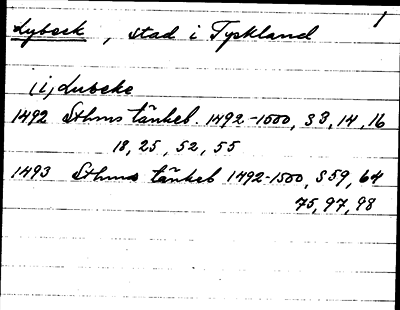 1
Lybeck, stad i Tyskland
(i) Lubeke
1492 Sthms tänkeb. 1492-1500, s 3, 14, 16
18, 25, 52, 55
1493 Sthms tänkeb 1492-1500, s 59, 64
75, 97, 98